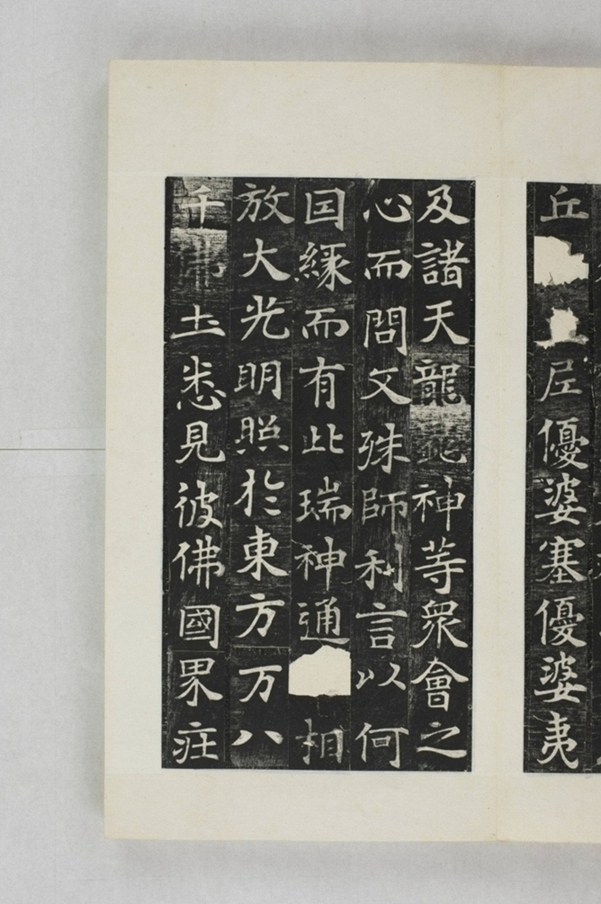 丘尼優婆塞優婆夷
及諸天龍鬼神等眾會之
心而問文殊師利言以何
因緣而有此瑞神通相
放大光明照於東方万八
千佛土悉見彼佛國界莊